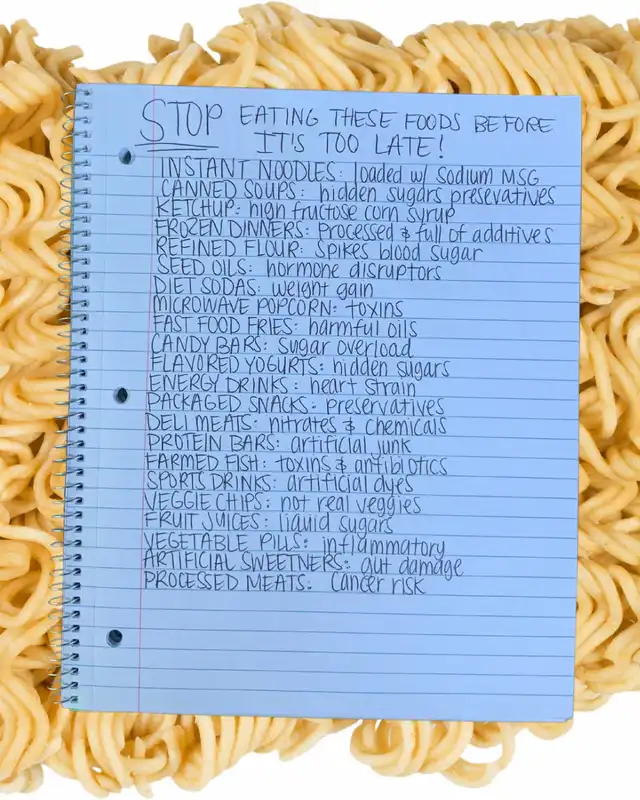 STOP EATING THESE FOODS BEFORE
IT'S TOO LATE!
INSTANT NOODLES: loaded w/ sodium MSG
CANNED SOUPS: hidden sugars presevatives
KETCHUP: high fructose corn syrup
FROZEN DINNERS: Processed & full of additives
REFINED FLOUR: Spikes blood sugar
SEED OILS: hormone disruptors
DIET SODAS: weight gain
MICROWAVE POPCORN: toxins
FAST FOOD FRIES: harmful oils
CANDY BARS: Sugar overload
FLAVORED YOGURTS: hidden sugars
ENERGY DRINKS: heart strain
PACKAGED SNACKS: preservatives
DELI MEATS: nitrates & chemicals
PROTEIN BARS: artificial junk
FARMED FISH: toxins & antibiotics
SPORTS DRINKS: artificial dyes
VEGGIE CHIPS: not real veggies
FRUIT JUICES: liquid sugars
VEGETABLE PILLS: inflammatory
ARTIFICIAL SWEETNERS: gut damage
PROCESSED MEATS: Cancer risk